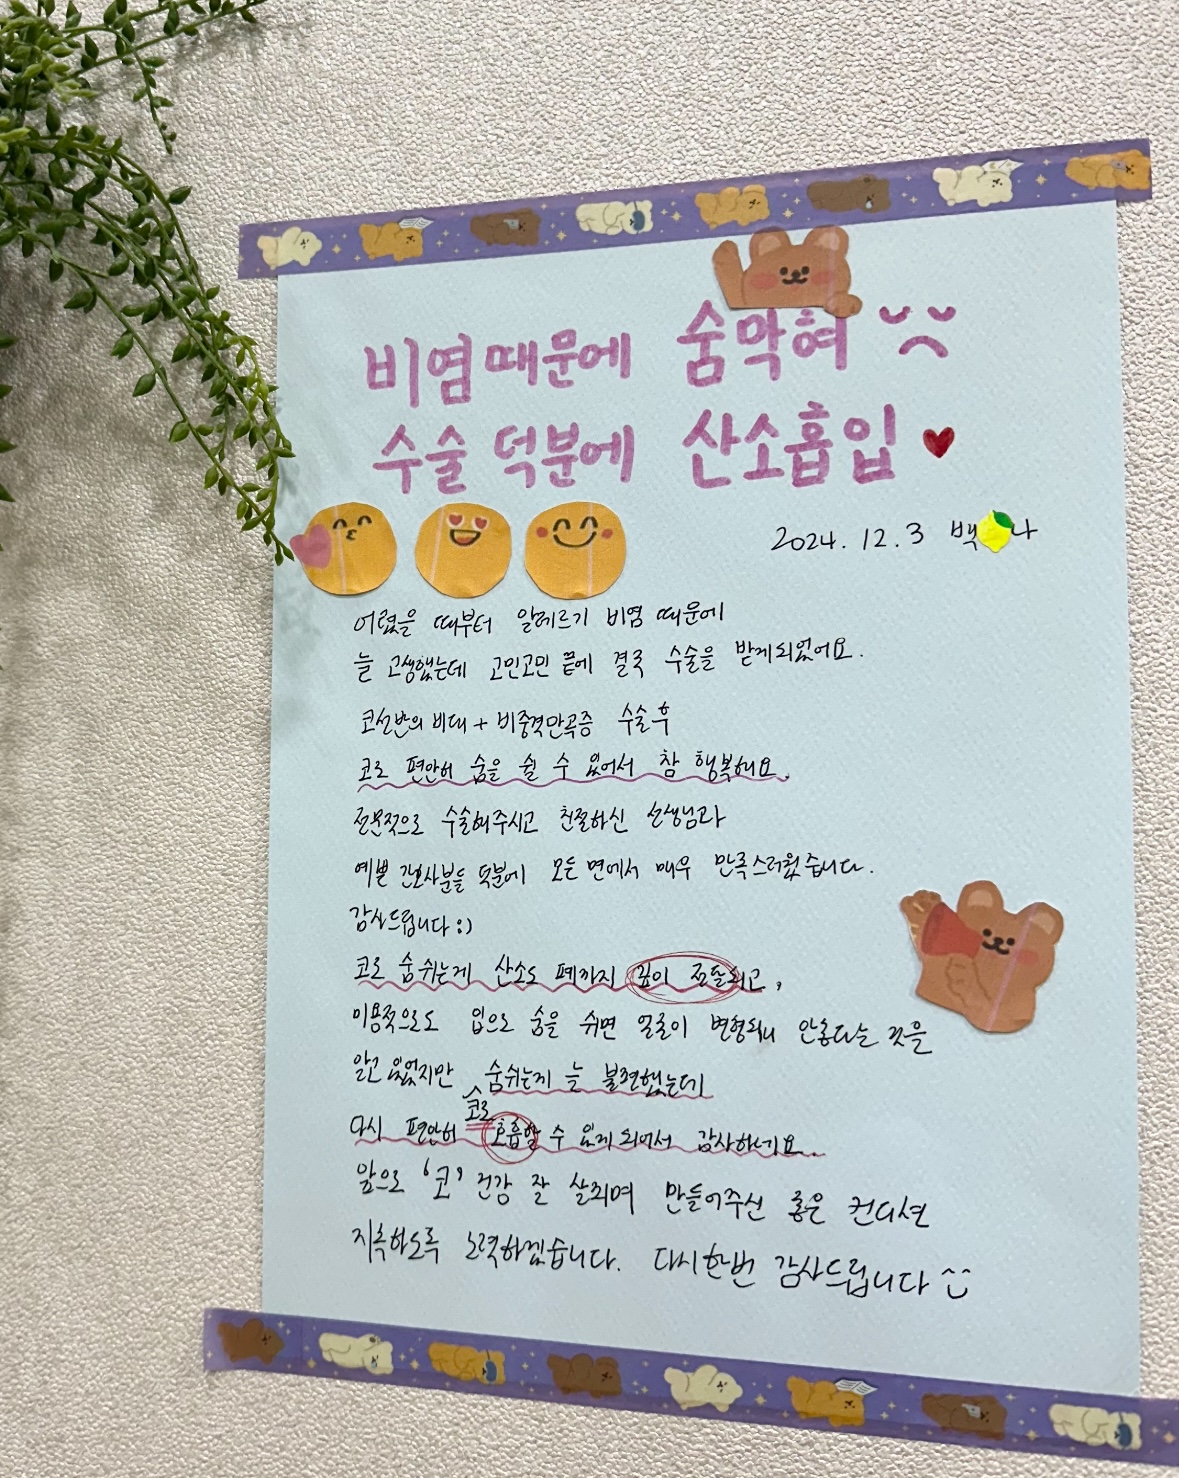 비염때문에 숨막혀
수술 덕분에 산소흡입
2024. 12. 3 백 나
어렸을 때부터 알레르기 비염 때문에
늘 고생했는데 고민고민 끝에 결국 수술을 받게되었어요.
코선반의 비대 + 비중격만곡증 수술 후
코로 편안히 숨을 쉴 수 있어서 참 행복해요.
전문적으로 수술해주시고 친절하신 선생님과
예쁜 간호사분들 덕분에 모든 면에서 매우 만족스러웠습니다.
감사드립니다 :)
코로 숨쉬는게 산소도 폐까지 깊이 전달되고,
미용적으로도 입으로 숨을 쉬면 얼굴이 변형되니 안좋다는 것을
알고 있었지만 숨쉬는게 늘 불편했는데
다시 편안히 코로 호흡할 수 있게 되어서 감사하네요.
앞으로 '코' 건강 잘 살피며 만들어주신 좋은 컨디션
지속하도록 노력하겠습니다. 다시한번 감사드립니다 ^^